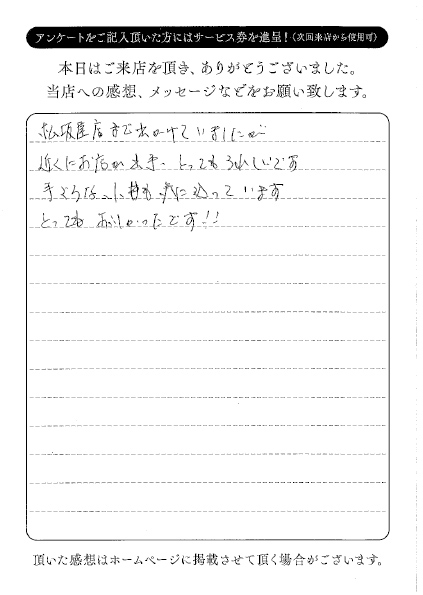 アンケートをご記入頂いた方にはサービス券を進呈！（次回来店から使用可）
本日はご来店を頂き、ありがとうございました。
当店への感想、メッセージなどをお願い致します。
松坂屋店まで出かけていましたが
近くにお店が出来、とってもうれしいです
手ごろな、に入っています
とっても おいしかったです!!
頂いた感想はホームページに掲載させて頂く場合がございます。